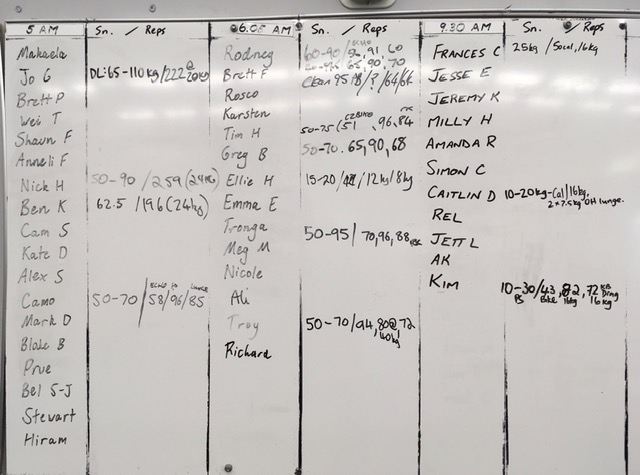 5 AM Sn. / Reps 6.05 AM Sn. / Reps 9.30 AM Sn. / Reps
Makaela
Jo G DL:65-110kg/222@20kg
Brett P
Wei T
Shaun F
Anneli F
Nick H 50-90 / 259 (24kg)
Ben K 62.5 / 196 (24kg)
Cam S
Kate D
Alex S
Camo 50-70 / 58/96/85
Mark D
Blake B
Prue
Bel S-J
Stewart
Hiram
Rodney 60-90 / 91, 60
Brett F 65, 90, 70
Rosco Clean 95 / ? / 64/64
Karsten
Tim H 50-75 (51, 96, 84
Greg B 50-70. 65, 90, 68
Ellie H 15-20 / 12kg/8kg
Emma E
Tronga 50-95 / 70, 96, 88
Meg M
Nicole
Ali
Troy 50-70/94, 80@72
40kg
Richard
FRANCES C 25kg / 50cal, 16kg
JESSE E
JEREMY K
MILLY H
AMANDA R
SIMON C
CAITLIN D 10-20kg-Cal/16kg,
2 x 7.5kg OH lunge.
REL
JETT L
AK
KIM 10-30/43, 82, 72 KB
PS Bike 16kg 16kg